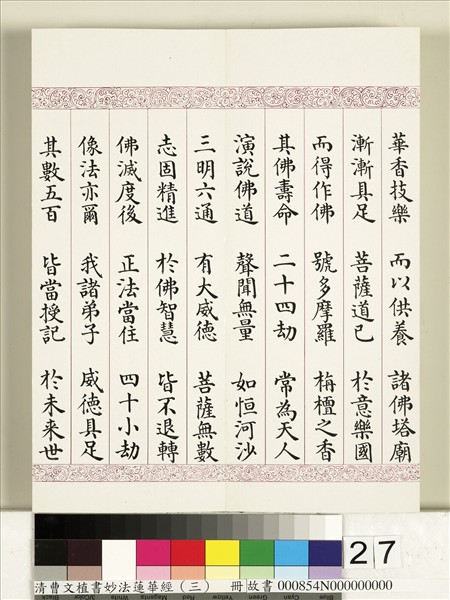 華香技樂 而以供養 諸佛塔廟
漸漸具足 菩薩道已 於意樂國
而得作佛 號多摩羅 栴檀之香
其佛壽命 二十四劫 常為天人
演說佛道 聲聞無量 如恒河沙
三明六通 有大威德 菩薩無數
志固精進 於佛智慧 皆不退轉
佛滅度後 正法當住 四十小劫
像法亦爾 我諸弟子 威德具足
其數五百 皆當授記 於未來世
27
清曹文植書妙法蓮華經（三） 冊 故書 000854N000000000